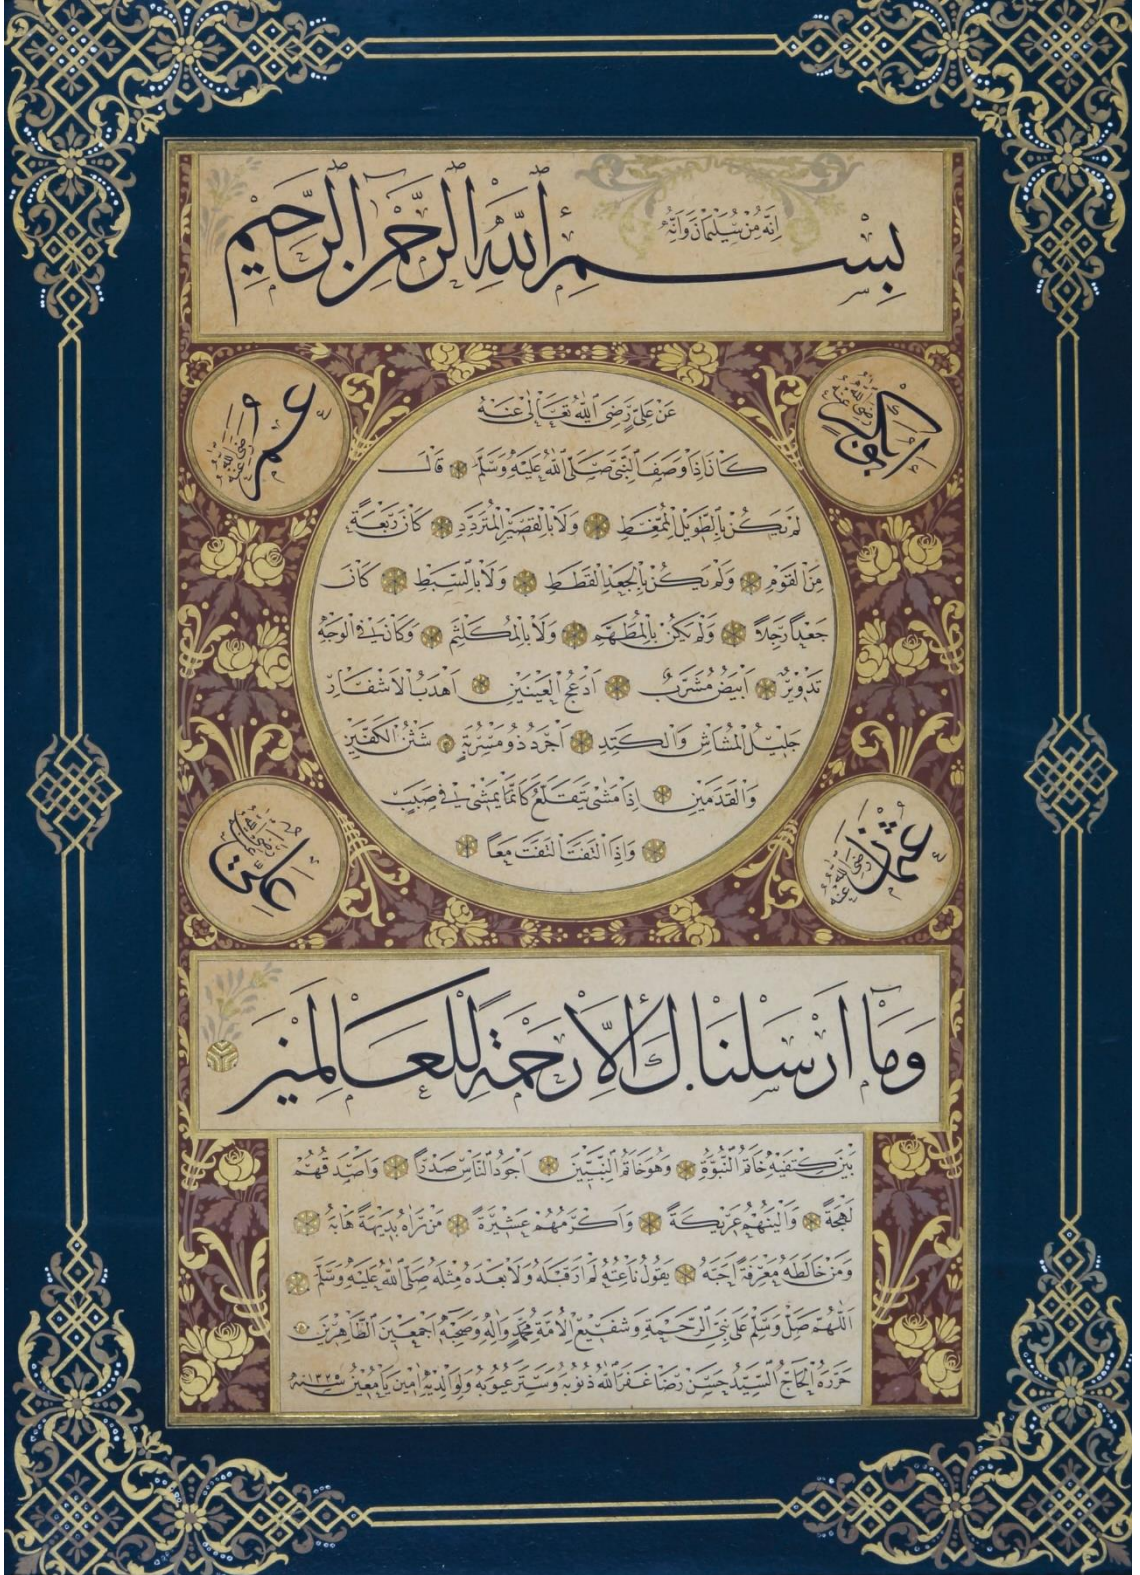 إنه من سليمان وإنه
بسم الله الرحمن الرحيم
ابو بكر رضى الله عنه
عمر رضى الله عنه
عن على رضى الله تعالى عنه
كان اذا وصف النبى صلى الله عليه وسلم قال
لم يكن بالطويل الممغط ولا بالقصير المتردد كان ربعة
من القوم ولم يكن بالجعد القطط ولا بالسبط كان
جعدا رجلا ولم يكن بالمطهم ولا بالمكلثم وكان فى الوجه
تدوير ابيض مشرب ادعج العينين اهدب الاشفار
جليل المشاش والكتد اجرد ذو مسربة شثن الكفين
والقدمين اذا مشى يتقلع كانما يمشى فى صبب
واذا التفت التفت معا
عثمان رضى الله عنه
على رضى الله عنه
وما ارسلناك الا رحمة للعالمين
بين كتفيه خاتم النبوة وهو خاتم النبيين اجود الناس صدرا واصدقهم
لهجة والينهم عريكة واكرمهم عشيرة من راه بديهة هابه
ومن خالطه معرفة احبه يقول ناعته لم ار قبله ولا بعده مثله صلى الله عليه وسلم
اللهم صل وسلم على نبى الرحمة وشفيع الامة محمد واله وصحبه اجمعين الطاهرين
حرره الحاج السيد حسن رضا غفر الله ذنوبه وستر عيوبه ولوالديه امين يا معين سنة ١٣٢٥